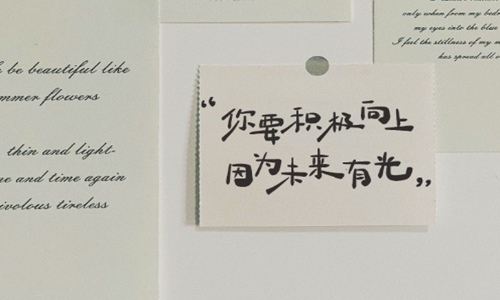 be beautiful like
flowers
thin and light-
and time again
tireless
only when from my
my eyes into the blue
I feel the stillness of my
has spread all
“你要积极向上
因为未来有光”